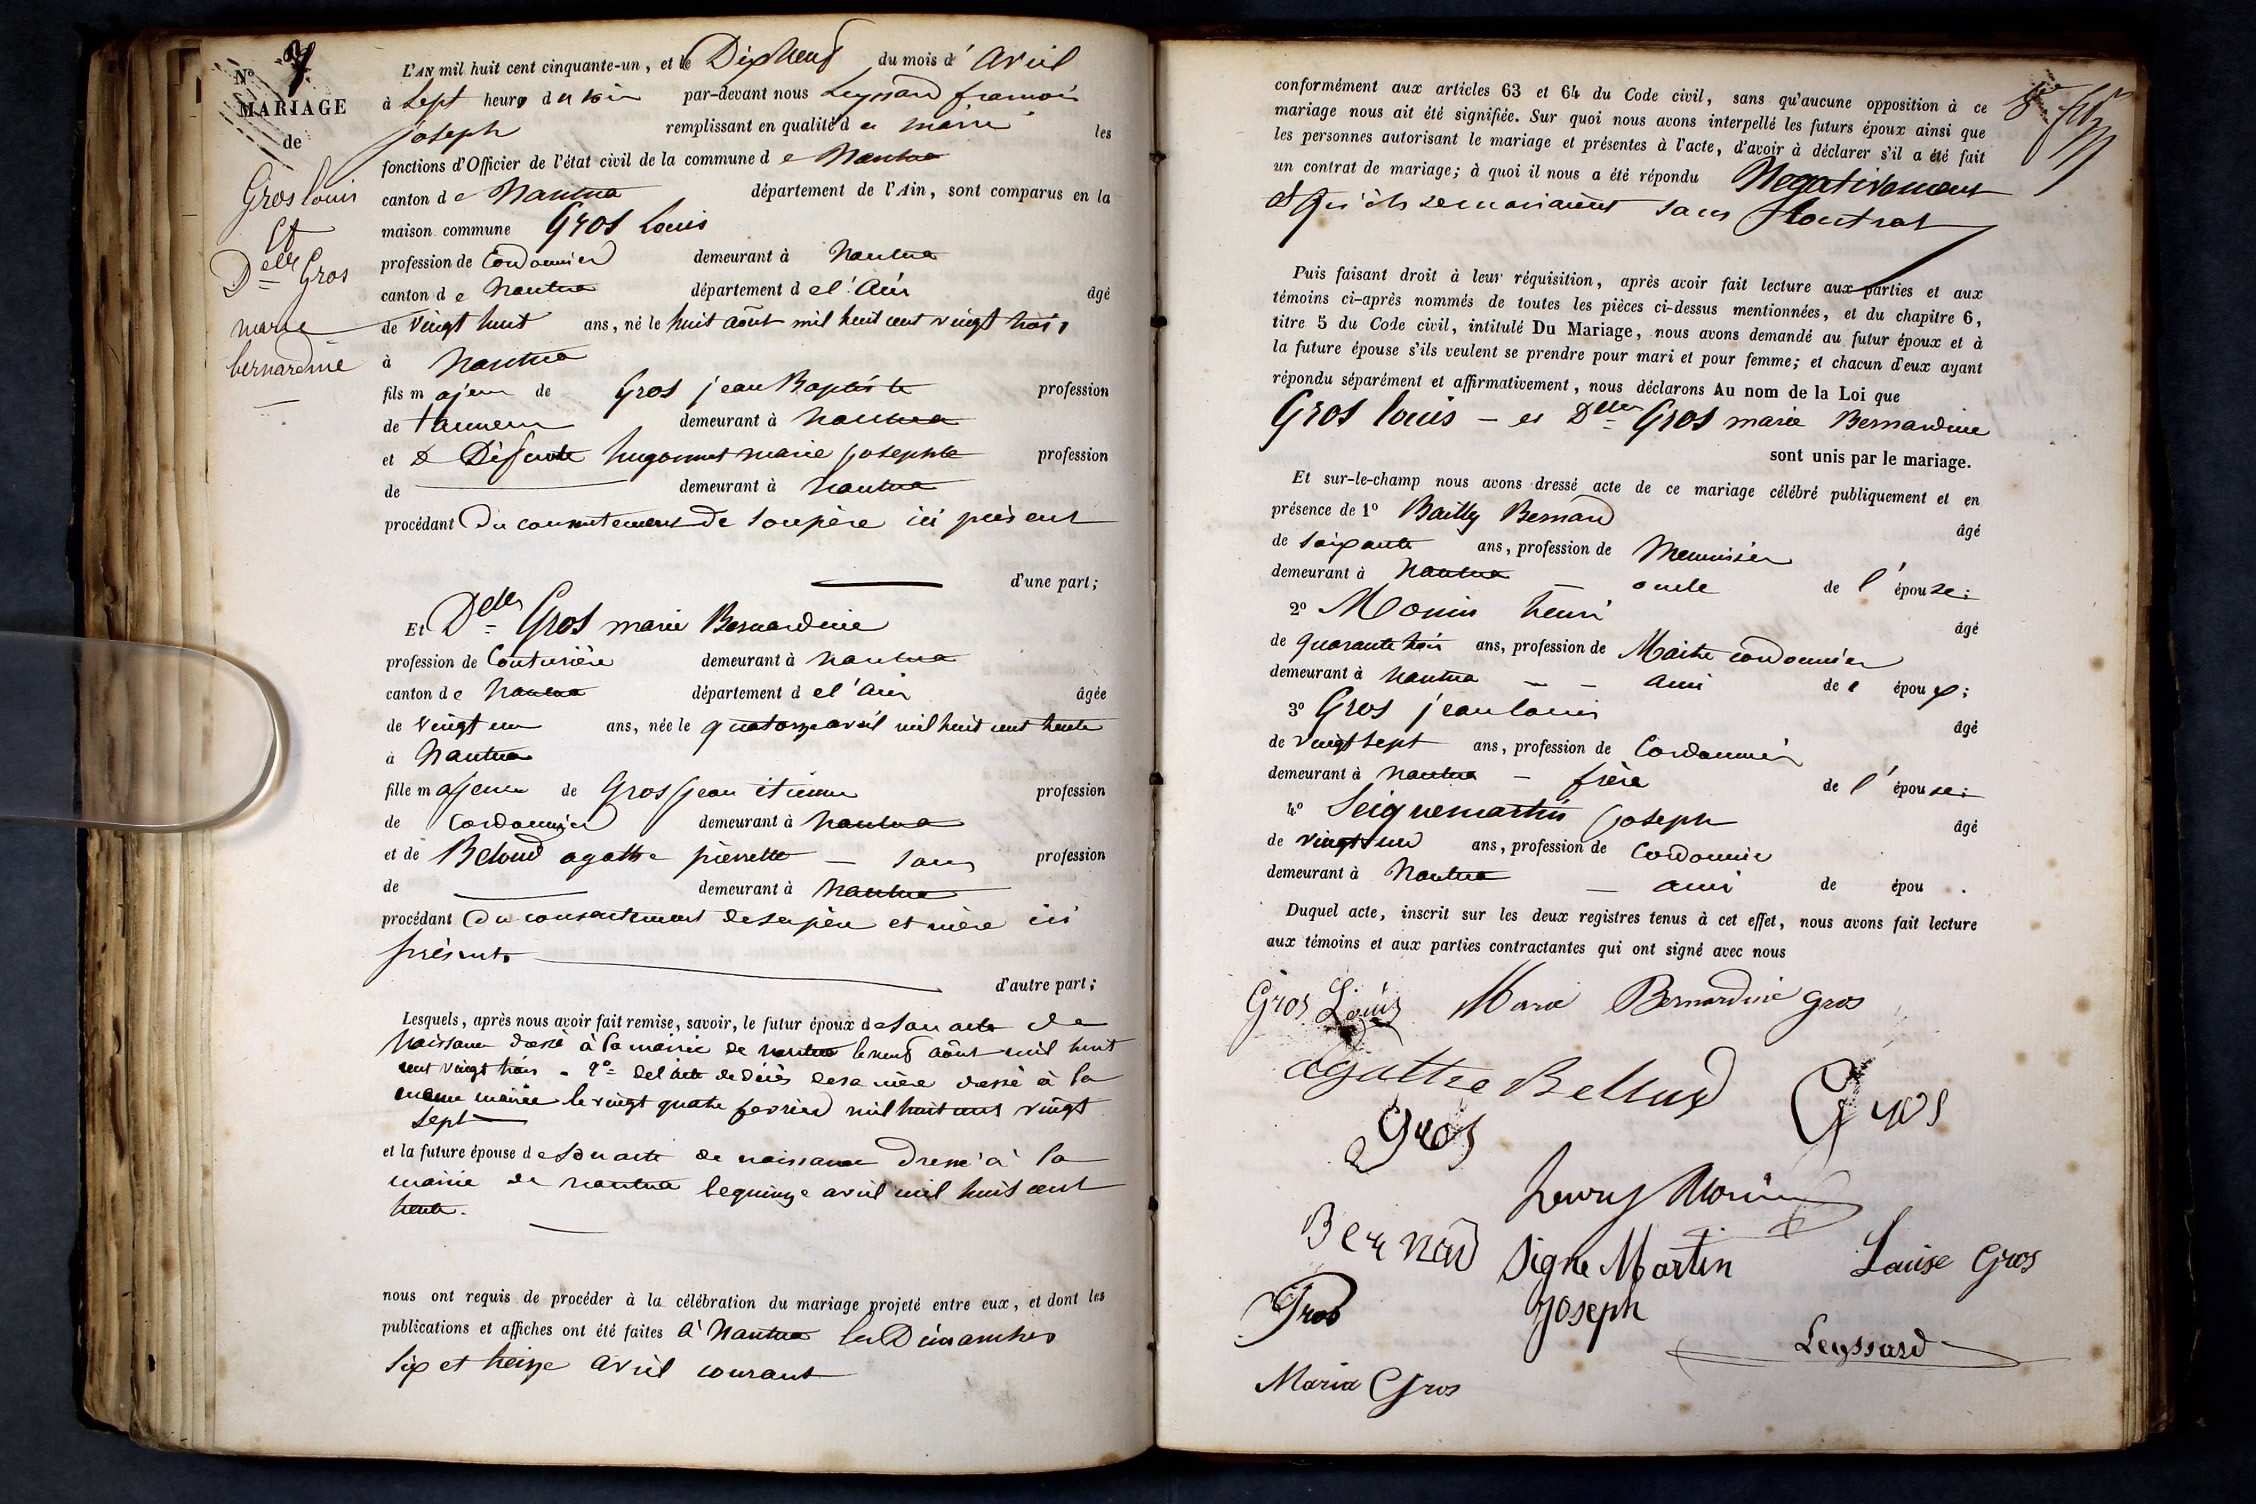 N° 7
MARIAGE
de
Gros louis
et
Delle Gros
marie
bernardine
L'AN mil huit cent cinquante-un, et le Dixneuf du mois d' avril
à Sept heures du soir par-devant nous Leyssard françois
joseph remplissant en qualité de maire les
fonctions d'Officier de l'état civil de la commune de Nantua
canton de Nantua département de l'Ain, sont comparus en la
maison commune Gros Louis
profession de Cordonnier demeurant à Nantua
canton de Nantua département de l'Ain âgé
de vingt huit ans, né le huit août mil huit cent vingt trois
à Nantua
fils majeur de Gros jean Baptiste profession
de tanneur demeurant à Nantua
et de Défunte hugonnet marie josephte profession
de demeurant à Nantua
procédant Du consentement De son père ici présent
d'une part;
Et Delle Gros marie Bernardine
profession de Couturière demeurant à Nantua
canton de Nantua département de l'Ain âgée
de vingt un ans, née le quatorze avril mil huit cent trente
à Nantua
fille majeure de Gros jean étienne profession
de Cordonnier demeurant à Nantua
et de Beloud agathe pierrette – sans profession
de demeurant à Nantua
procédant Du consentement de ses père et mère ici
présents
d'autre part;
Lesquels, après nous avoir fait remise, savoir, le futur époux de son acte de
Naissance dressé à la mairie de Nantua le neuf août mil huit
cent vingt trois – 2° de l'acte de décès de sa mère dressé à la
même mairie le vingt quatre fevrier mil huit cent vingt
sept
et la future épouse de son acte de naissance dressé à la
mairie de Nantua le quinze avril mil huit cent
trente.
nous ont requis de procéder à la célébration du mariage projeté entre eux, et dont les
publications et affiches ont été faites à Nantua les Dimanches
six et treize avril courant
conformément aux articles 63 et 64 du Code civil, sans qu'aucune opposition à ce
mariage nous ait été signifiée. Sur quoi nous avons interpellé les futurs époux ainsi que
les personnes autorisant le mariage et présentes à l'acte, d'avoir à déclarer s'il a été fait
un contrat de mariage; à quoi il nous a été répondu Negativement
et qu'ils se mariaient sans Contrat
Puis faisant droit à leur réquisition, après avoir fait lecture aux parties et aux
témoins ci-après nommés de toutes les pièces ci-dessus mentionnées, et du chapitre 6,
titre 5 du Code civil, intitulé Du Mariage, nous avons demandé au futur époux et à
la future épouse s'ils veulent se prendre pour mari et pour femme; et chacun d'eux ayant
répondu séparément et affirmativement, nous déclarons Au nom de la Loi que
Gros louis – et Delle Gros marie Bernardine
sont unis par le mariage.
Et sur-le-champ nous avons dressé acte de ce mariage célébré publiquement et en
présence de 1° Bailly Bernard âgé
de soixante ans, profession de Menuisier
demeurant à Nantua – oncle de l'épouse;
2° Monin henri âgé
de quarante trois ans, profession de Maitre cordonnier
demeurant à Nantua – – ami de l époux;
3° Gros jean louis âgé
de vingt sept ans, profession de Cordonnier
demeurant à Nantua – frère de l'épouse;
4° Seignemartin joseph âgé
de vingt un ans, profession de Cordonnier
demeurant à Nantua – ami de épou .
Duquel acte, inscrit sur les deux registres tenus à cet effet, nous avons fait lecture
aux témoins et aux parties contractantes qui ont signé avec nous
Gros Louis Marie Bernardine gros
agathe Belloud Gros
Gros
henry Monin
Bernard Signe Martin Louise Gros
Gros Joseph
Leyssard
Maria Gros